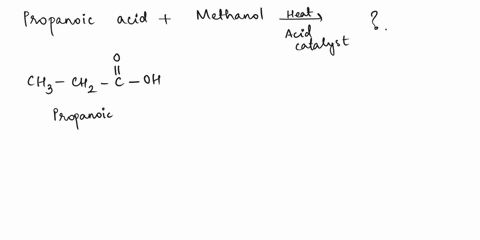 Propanoic acid + Methanol Heat → ?.
Acid
catalyst
O
||
CH₃ – CH₂ – C – OH
Propanoic